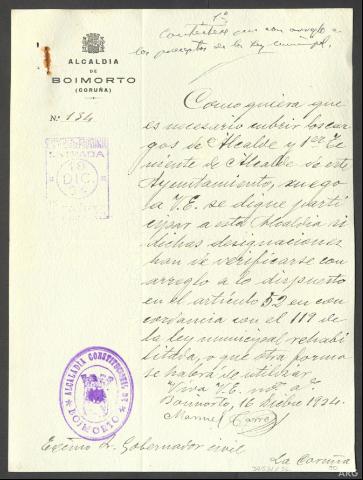 1º
Contestese que con arreglo a
los preceptos de la ley municipal.
ALCALDIA
DE
BOIMORTO
(CORUÑA)
N.º 154
ENTRADA
DIC
Como quiera que
es necesario cubrir los car-
gos de Alcalde y 1er Te-
niente de Alcalde de este
Ayuntamiento, ruego
a V.E. se digne parti-
cipar a esta Alcaldia si
dichas designaciones
han de verificarse con
arreglo a lo dispuesto
en el artículo 52 en con-
cordancia con el 119 de
la ley municipal rehabi-
litada, o que otra forma
se habrá de utilizar.
Viva V.E. ms. as.
Boimorto, 16 Dicbre 1934.
Manuel
ALCALDIA CONSTITUCIONAL DE
BOIMORTO
Excmo Sr. Gobernador civil
La Coruña
ARG